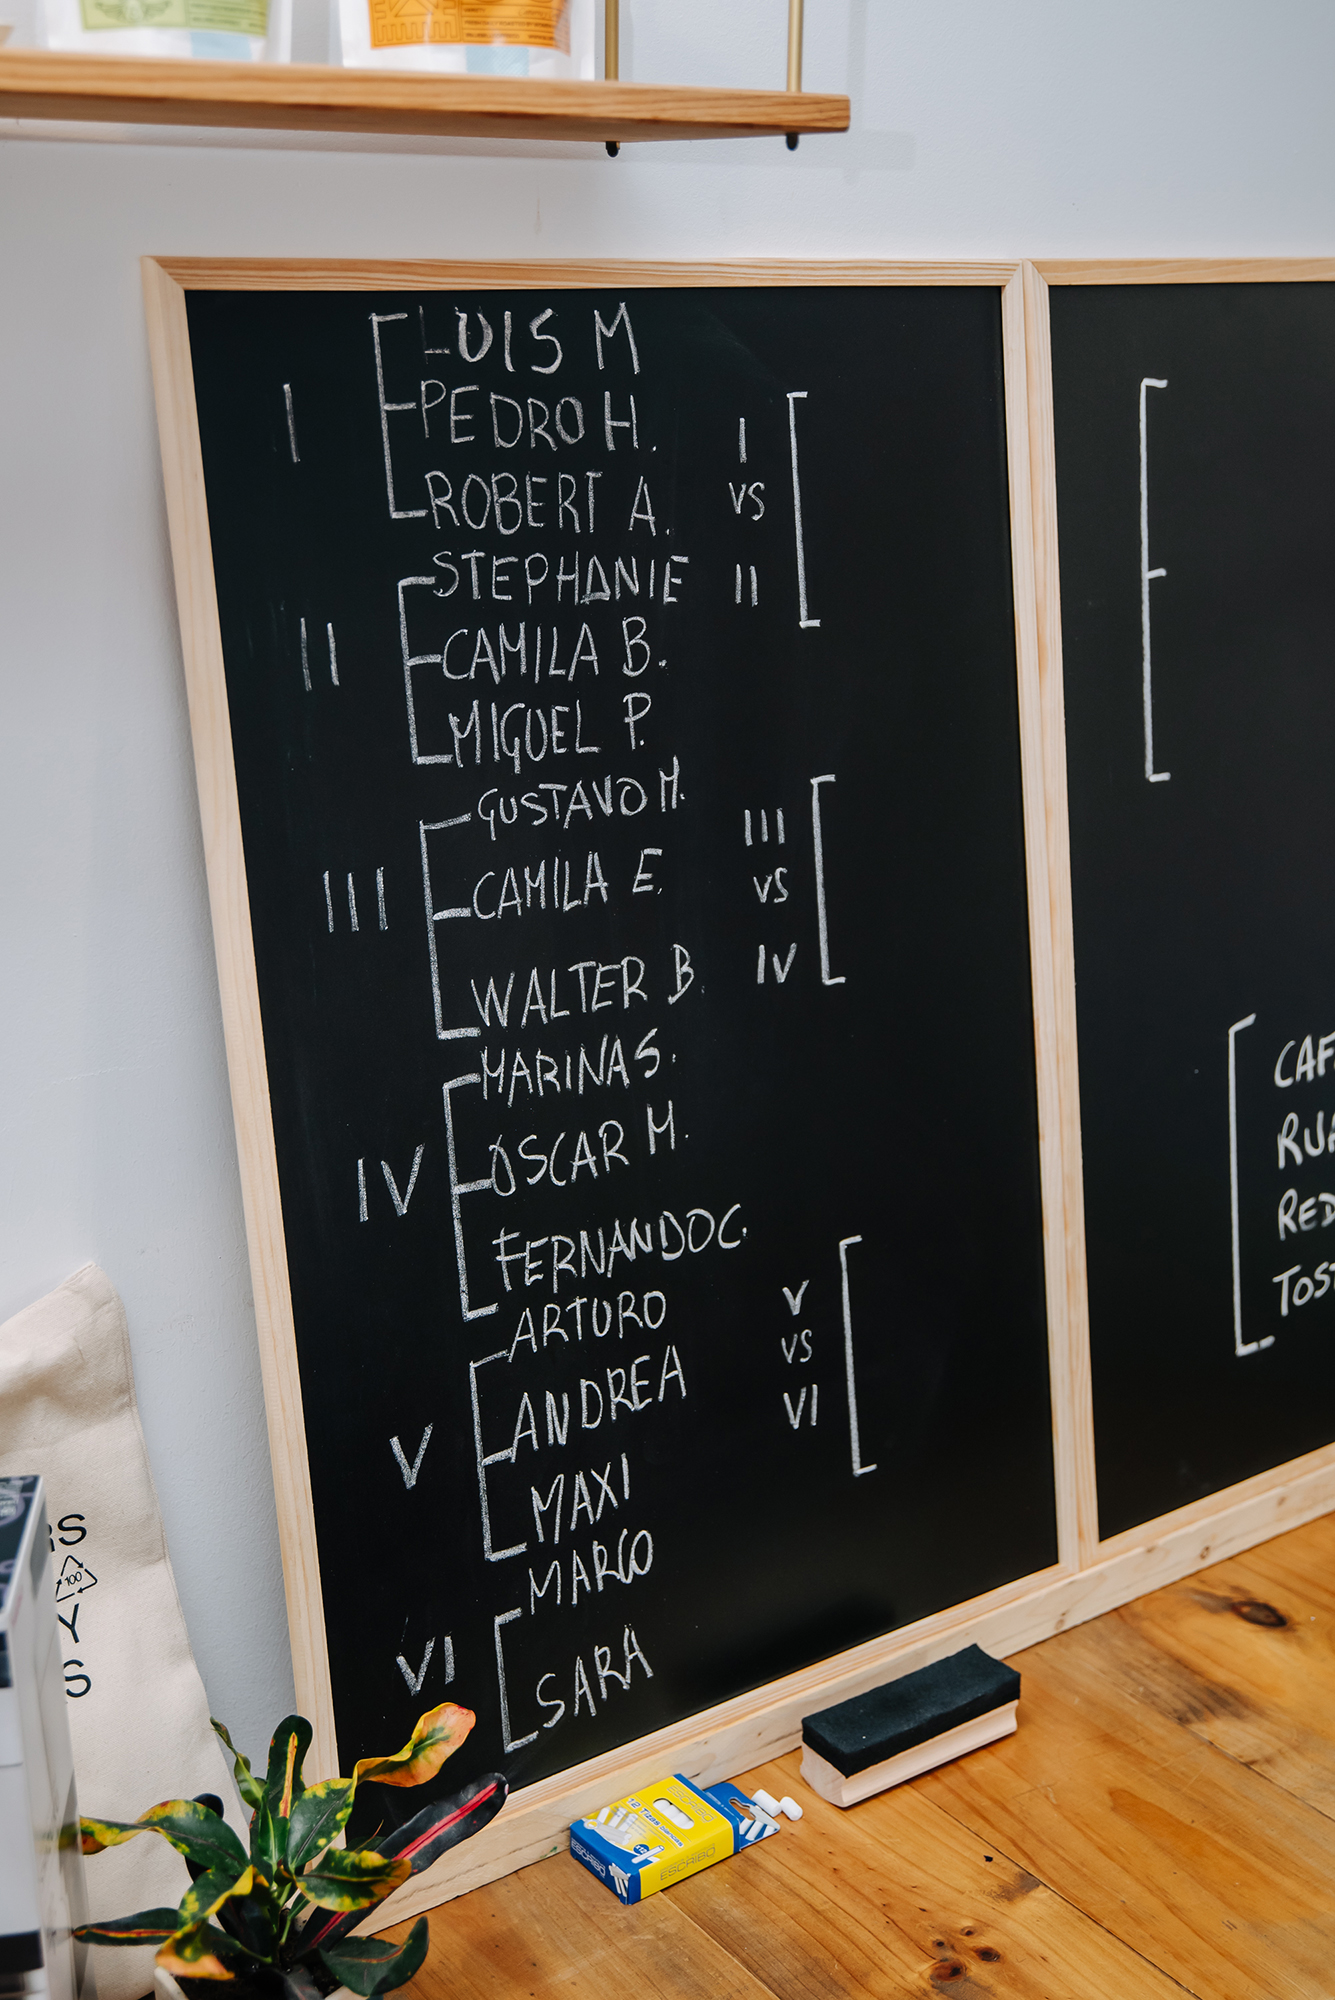 I
LUIS M
PEDRO H.
ROBERT A.
II
STEPHANIE
CAMILA B.
MIGUEL P.
III
GUSTAVO M.
CAMILA E.
WALTER B.
IV
MARINA S.
OSCAR M.
FERNANDO C.
V
ARTURO
ANDREA
MAXI
VI
MARCO
SARA
I
VS
II
III
VS
IV
V
VS
VI
CAF
RED
TOST
S
100
Y
S
12 Tizas blancas
ESCRIBO
ESCRIBO
ESCRIBO
12